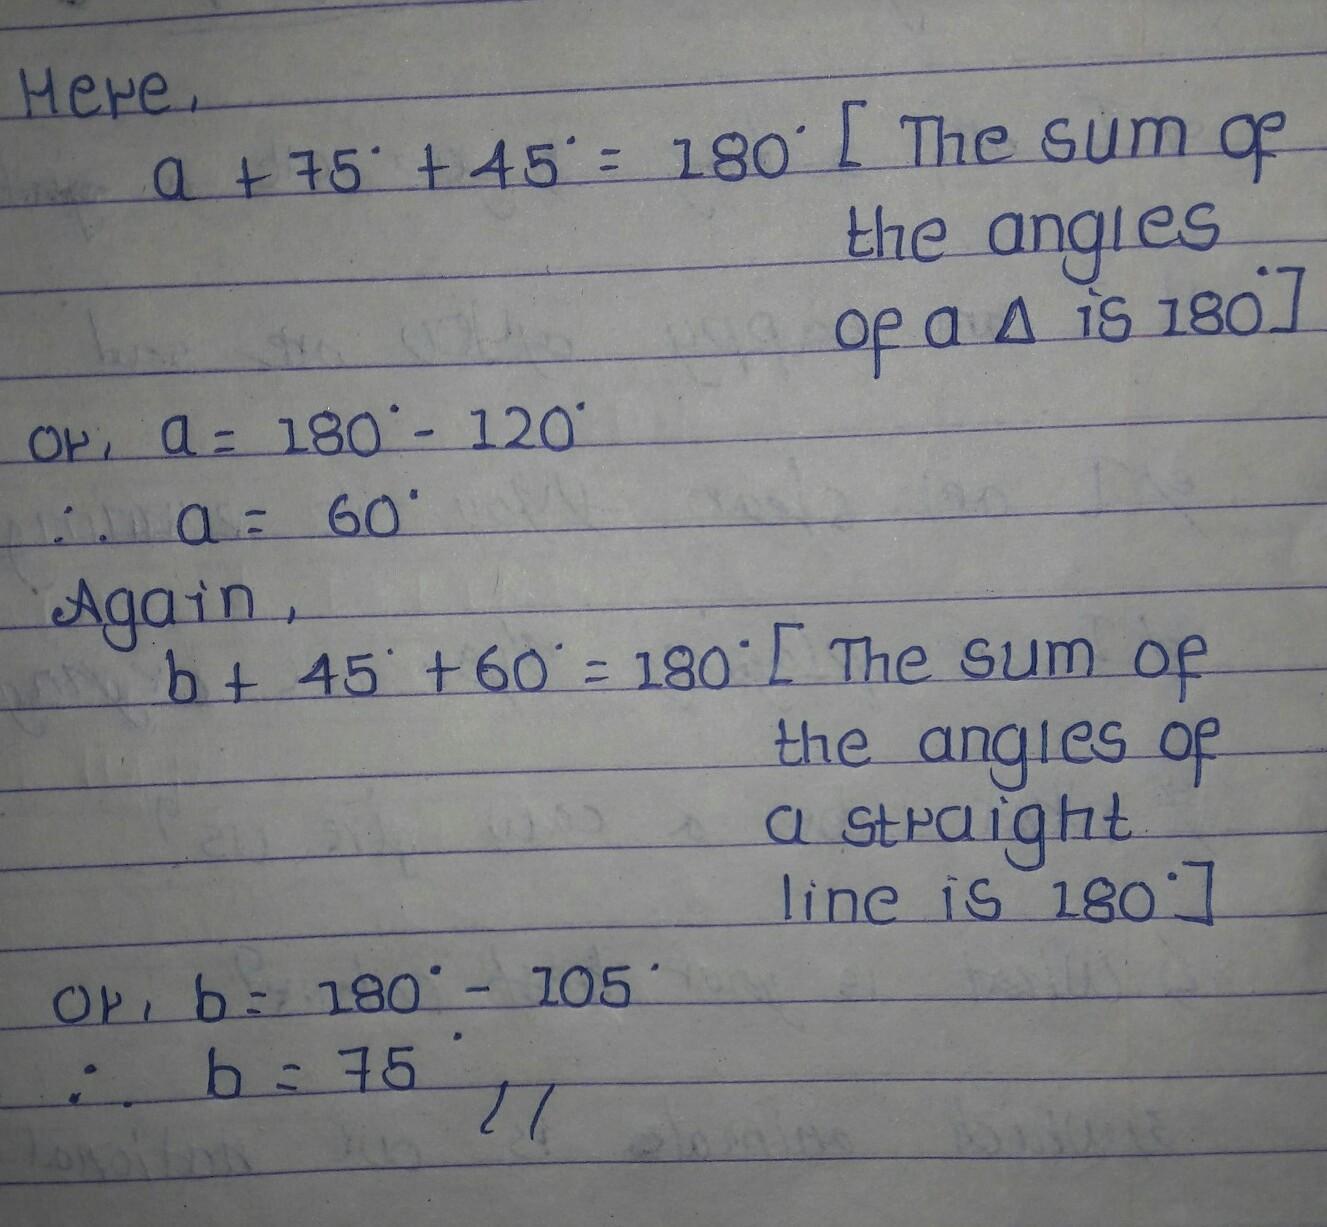 Here,
a + 75° + 45° = 180° [ The sum of
the angles
of a Δ is 180°]
or, a = 180° - 120°
∴ a = 60°
Again,
b + 45° + 60° = 180° [ The sum of
the angles of
a straight
line is 180°]
or, b = 180° - 105°
∴ b = 75° //